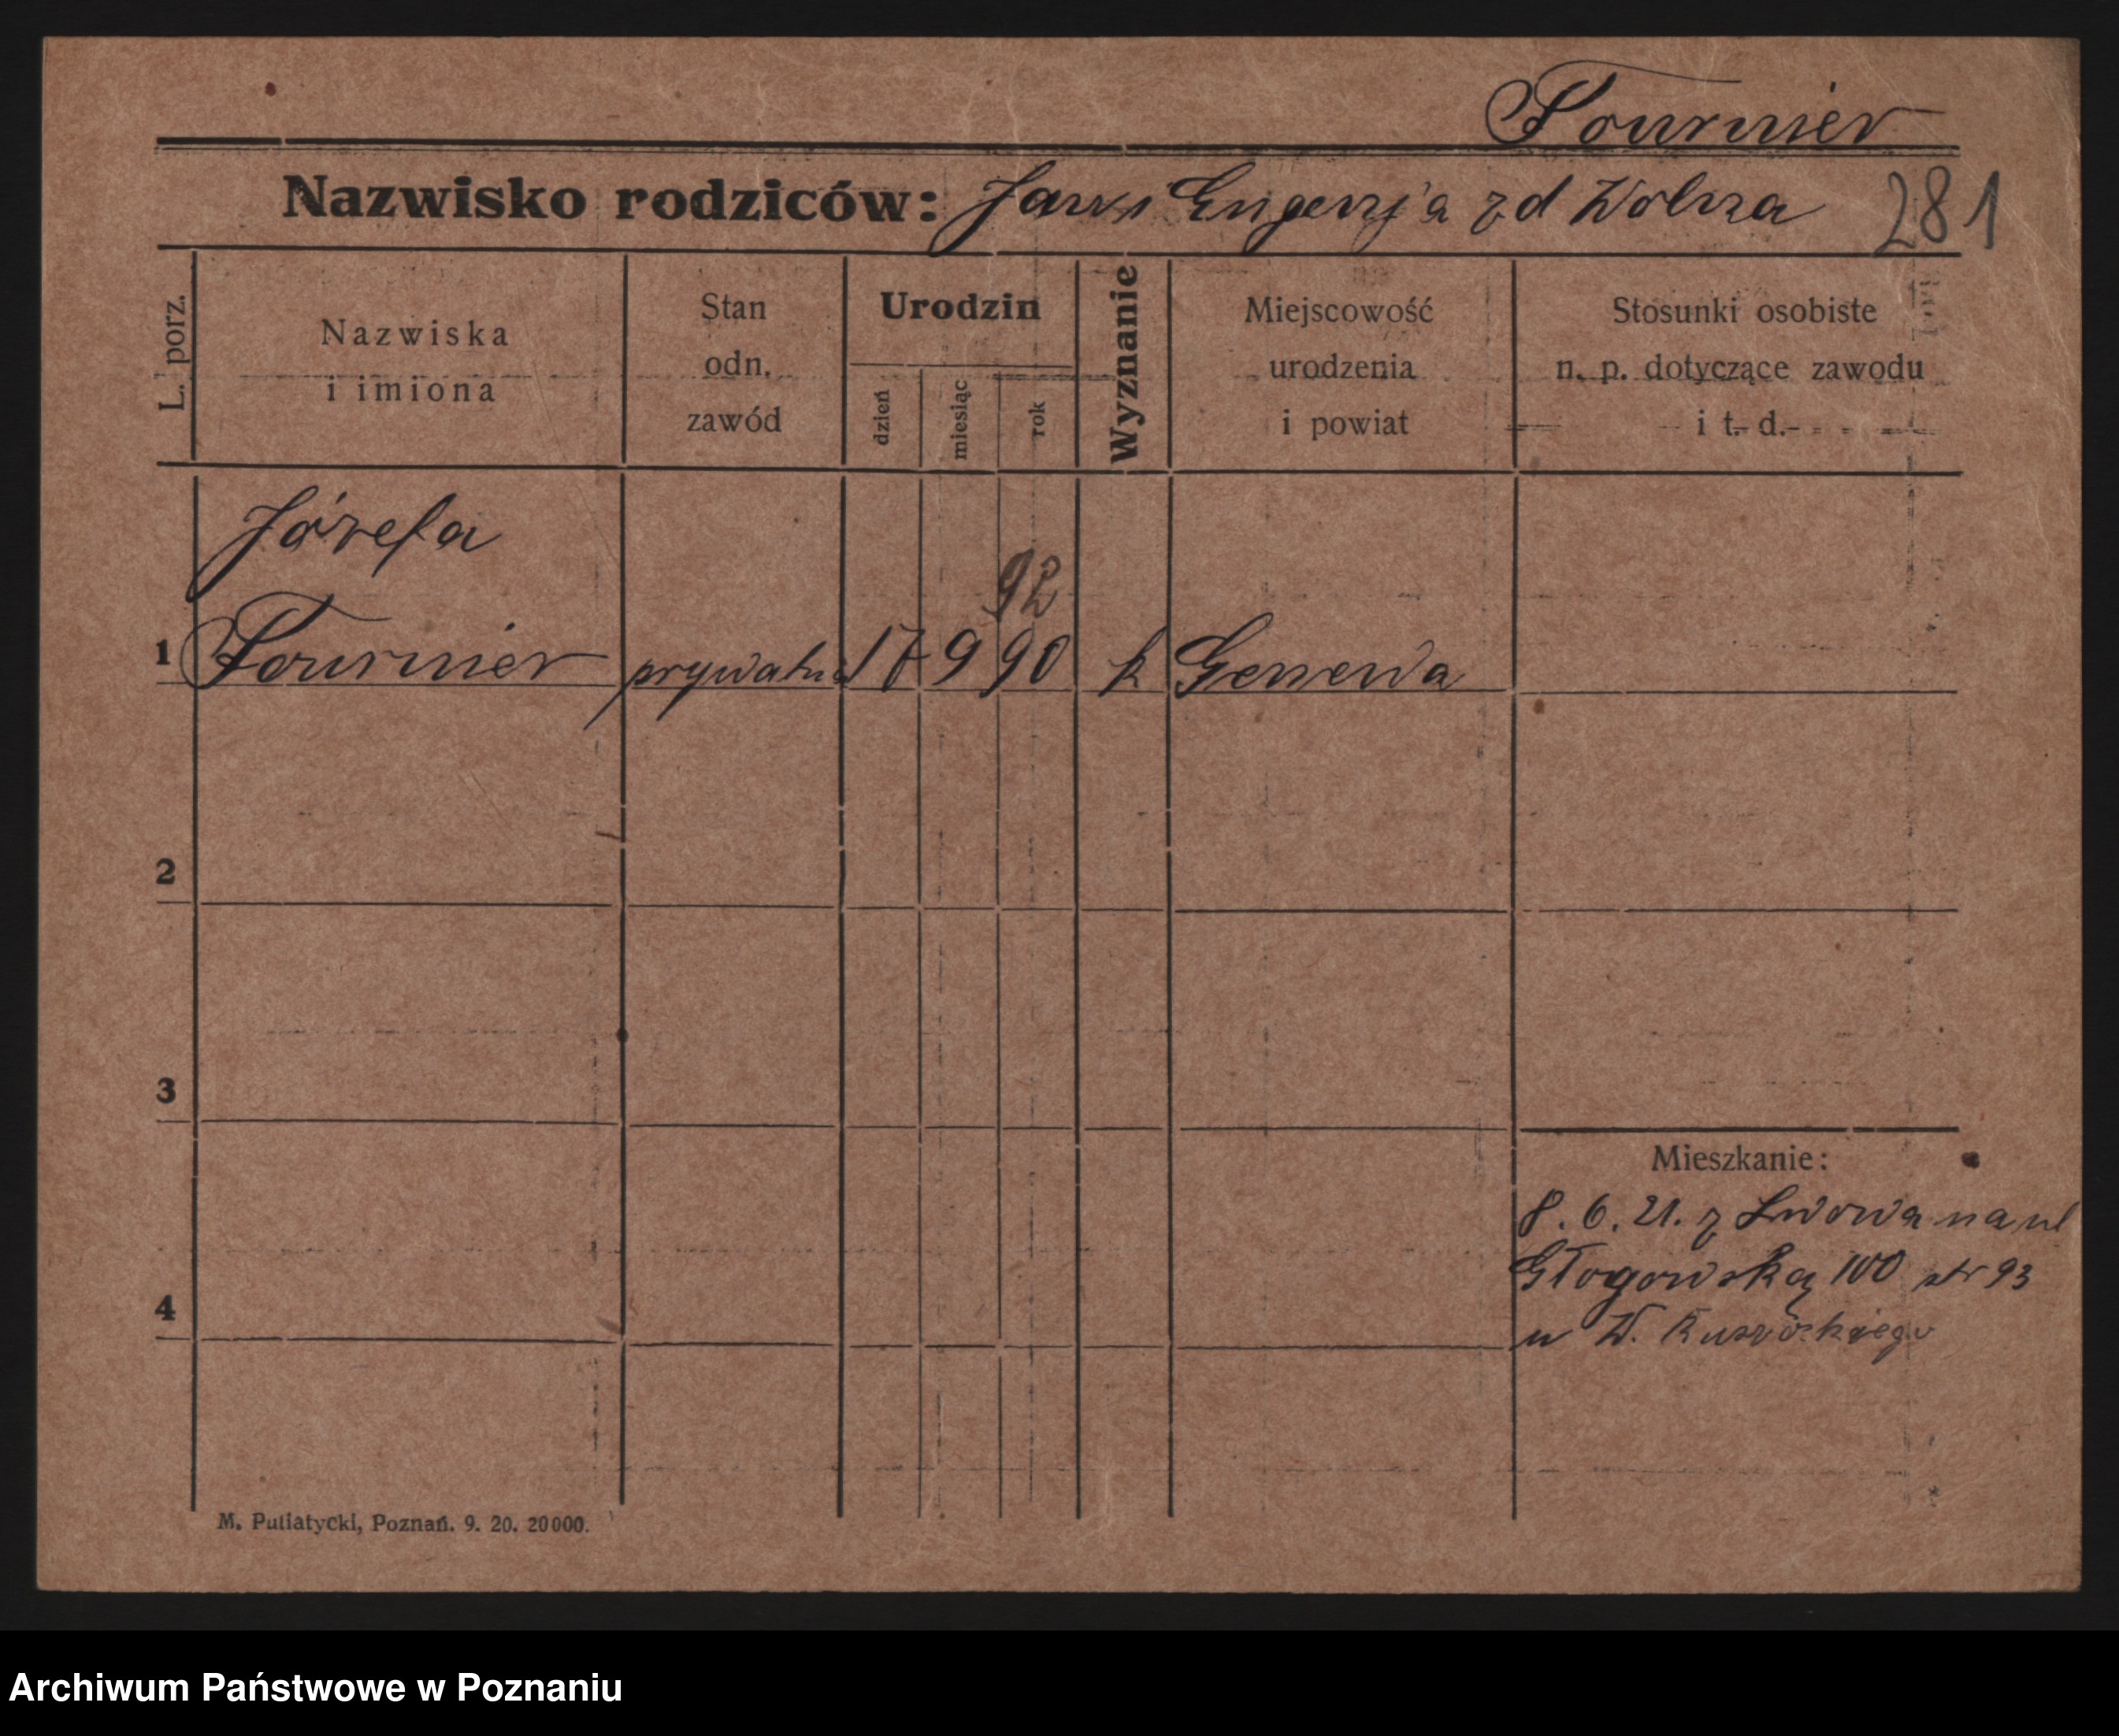 Fournier
Nazwisko rodziców: Eugenja zd Wolna 281
L. porz.
Nazwiska
i imiona
Stan
odn.
zawód
Urodzin
dzień
miesiąc
rok
Wyznanie
Miejscowość
urodzenia
i powiat
Stosunki osobiste
n. p. dotyczące zawodu
i t. d.
Józefa
92
1 Fournier prywatna 17 9 90 k Genewa
2
3
Mieszkanie:
8. 6. 21. z Lwowa na ul
Głogowską 100 str 93
4
u W.
M. Putiatycki, Poznań. 9. 20. 20000.
Archiwum Państwowe w Poznaniu